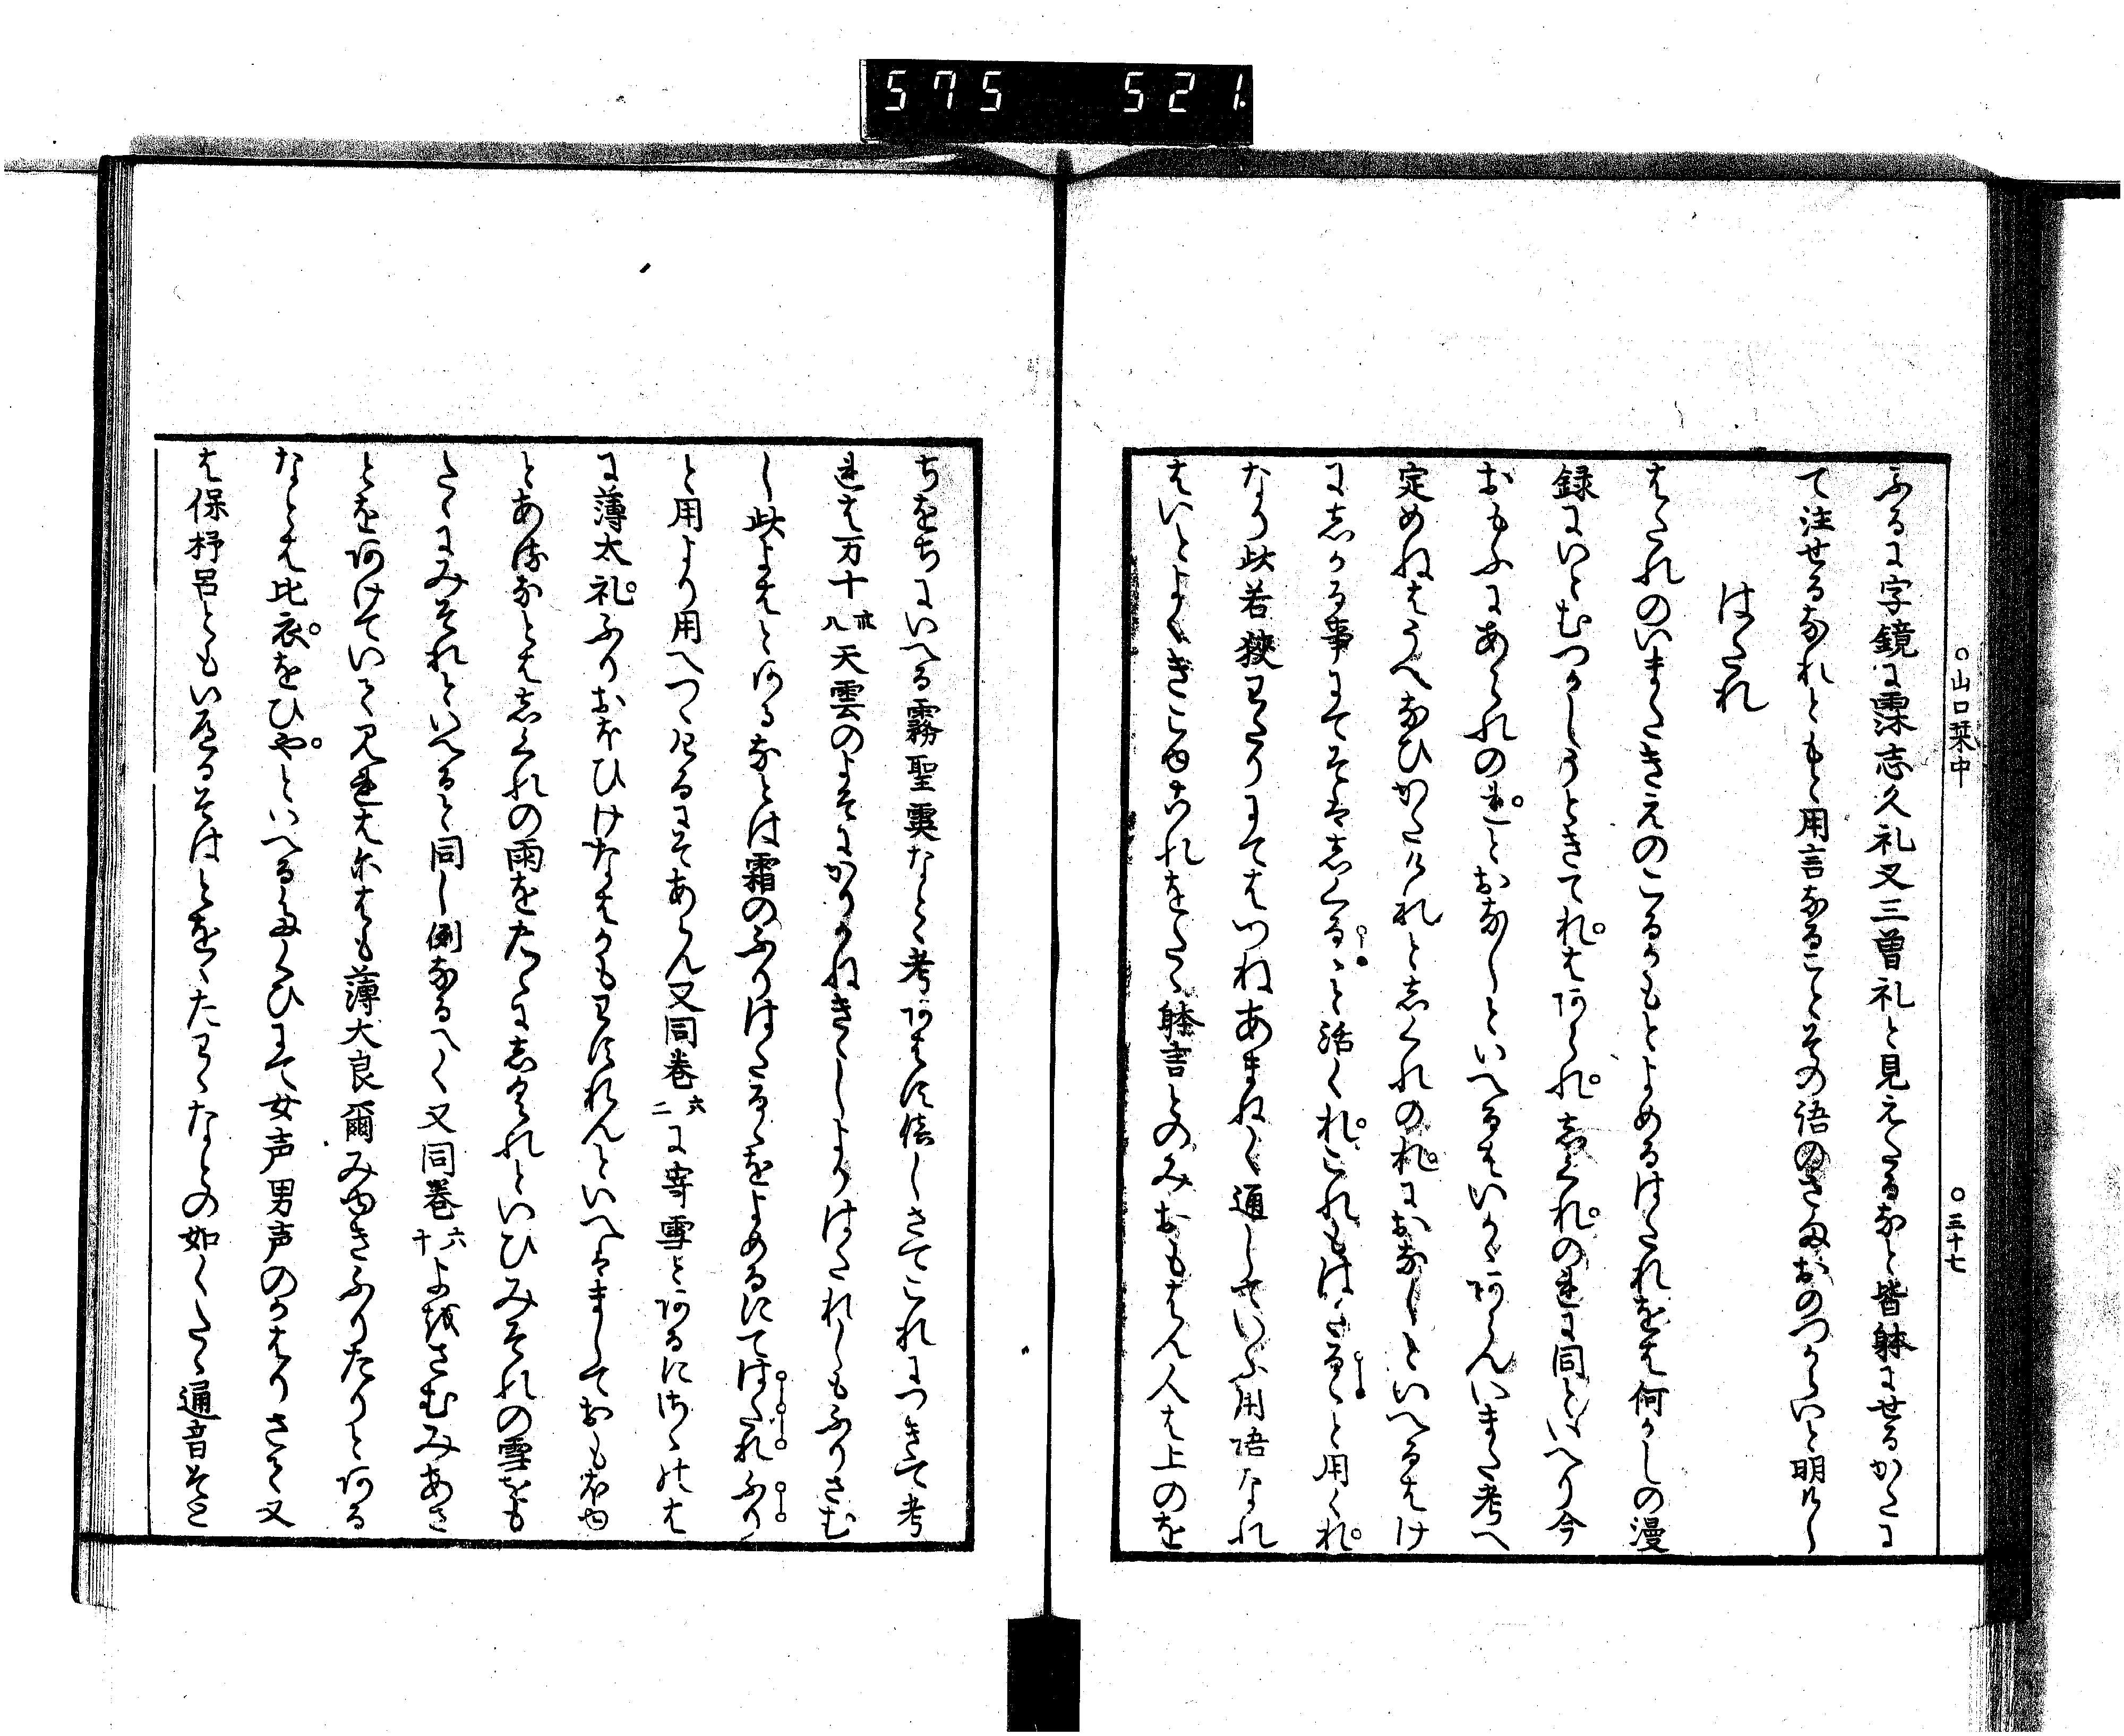 575 521.
○山口栞中 ○三十七
ふるに字鏡に霂志久礼又三曽礼と見えたるなと皆躰にせるかたに
て注せるなれともと用言なることその語のさまおのつからいと明けし
はたれ
はたれのいまたきえのこるかもとよめるはたれをは何かしの漫
録にいとむつかしうときてれはあられしくれのれに同しといへり今
おもふにあられのれとおなしといへるはいかゝあらんいまた考へ
定めねはうへなひかたけれとしくれのれにおなしといへるはけ
にしかる事にてそはしくるゝと活くれこれもはたるゝと用くれ
なり此若狭わたりにてはつねあまねく通しいふ用語なれ
はいとよくきこゆるをたゝ躰言とのみおもはん人は上のを
ちをちにいへる霧聖霙なとゝ考あはすへしさてこれにつきて考
れは万十 廿八 天雲のよそにかりかねきゝしよりはたれしもふりさむ
し此よはとあるなとは霜のふりはたるゝをよめるにてはたれふり
と用より用へつゝけるにそあらん又同巻 六二 に寄雪とあるにさゝの
に薄太礼ふりおほひけなはかもわすれんといへはましておもほゆ
とあるなとはしくれの雨をたゝにしくれといひみそれの雪をも
たゝにみそれといへると同し例なるへく又同巻 六十 よをさむみあさ
とをあけていて見れはにはも薄太良爾みゆきふりたりとある
なとは比衣をひやといへるたくひにて女声男声のかはりさて又
は保杼呂ともいへるそはとをゝたわゝなとの如くたゝ通音そと